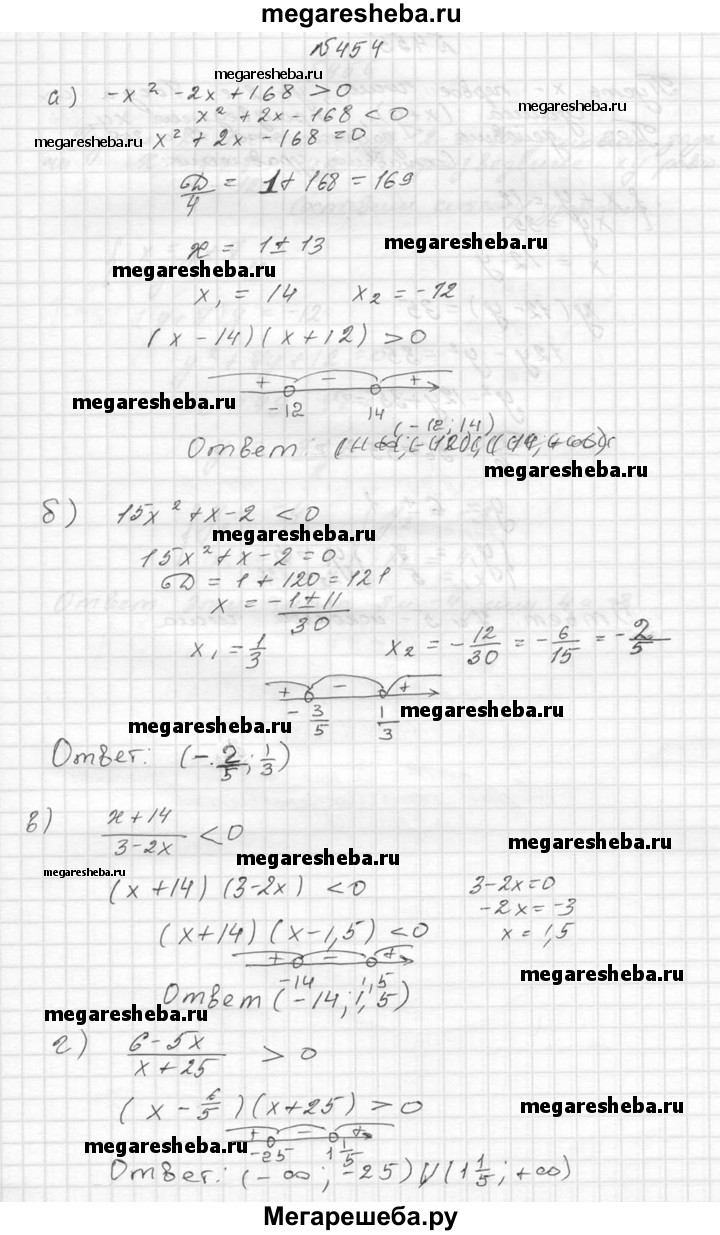 megaresheba.ru
№454
megaresheba.ru
а) -x² - 2x + 168 > 0
megaresheba.ru
x² + 2x - 168 < 0
megaresheba.ru x² + 2x - 168 = 0
D/4 = 1 + 168 = 169
x = 1 ± 13 megaresheba.ru
megaresheba.ru
x₁ = 14 x₂ = -12
(x - 14)(x + 12) > 0
+ − +
megaresheba.ru -12 14
(-12; 14)
Ответ:
megaresheba.ru
б) 15x² + x - 2 < 0
megaresheba.ru
15x² + x - 2 = 0
D = 1 + 120 = 121
x = (-1 ± 11)/30
x₁ = 1/3 x₂ = -12/30 = -6/15 = -2/5
+ − +
-3/5 1/3 megaresheba.ru
megaresheba.ru
Ответ: (-2/5; 1/3)
в) (x + 14)/(3 - 2x) < 0
megaresheba.ru
megaresheba.ru
megaresheba.ru
(x + 14)(3 - 2x) < 0 3 - 2x = 0
-2x = -3
(x + 14)(x - 1,5) < 0 x = 1,5
+ − +
-14 1,5 megaresheba.ru
Ответ (-14; 1,5)
megaresheba.ru
г) (6 - 5x)/(x + 25) > 0
megaresheba.ru
(x - 6/5)(x + 25) > 0
+ − +
megaresheba.ru -25 1 1/5
Ответ: (-∞; -25) U (1 1/5; +∞)
Мегарешеба.ру